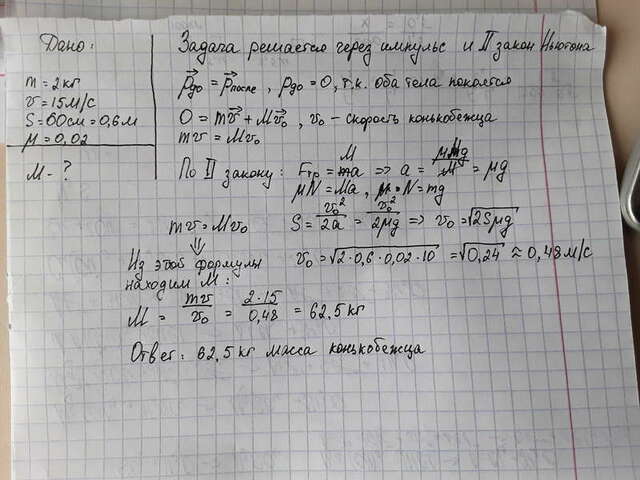 Дано:
m = 2 кг
v = 15 м/с
S = 60 см = 0,6 м
μ = 0,02
M - ?
Задача решается через импульс и II закон Ньютона
p⃗до = p⃗после , pдо = 0, т.к. оба тела покоятся
0 = mv⃗ + Mv⃗₀ , v₀ - скорость конькобежца
mv = Mv₀
По II закону: Fтр = Ma => a = μMg/M = μg
μN = Ma , N = mg
mv = Mv₀ S = v₀²/2a = v₀²/2μg => v₀ = √2Sμg
⇓
Из этой формулы
находим M:
v₀ = √2·0,6·0,02·10 = √0,24 ≈ 0,48 м/с
M = mv/v₀ = 2·15/0,48 = 62,5 кг
Ответ: 62,5 кг масса конькобежца